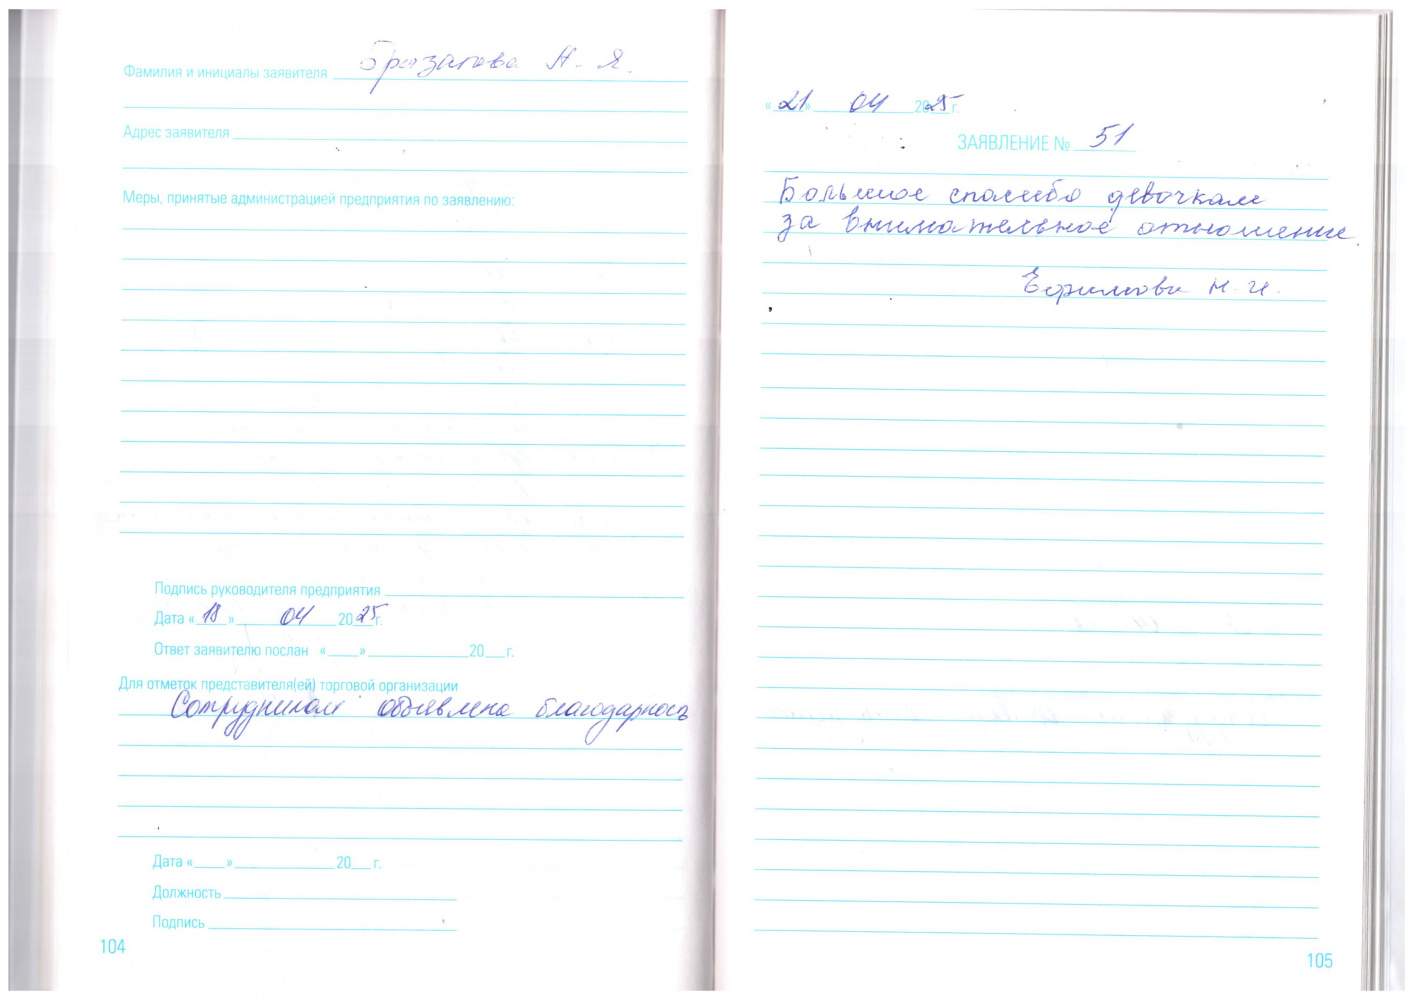 Фамилия и инициалы заявителя Бразатова Н. Я.
Адрес заявителя
Меры, принятые администрацией предприятия по заявлению:
Подпись руководителя предприятия
Дата «18» 04 2025 г.
Ответ заявителю послан « » 20 г.
Для отметок представителя(ей) торговой организации
Сотрудникам объявлена благодарность
Дата « » 20 г.
Должность
Подпись
104
«21» 04 2025 г.
ЗАЯВЛЕНИЕ № 51
Большое спасибо девочкам
за внимательное отношение.
Ефимова Н. И.
105